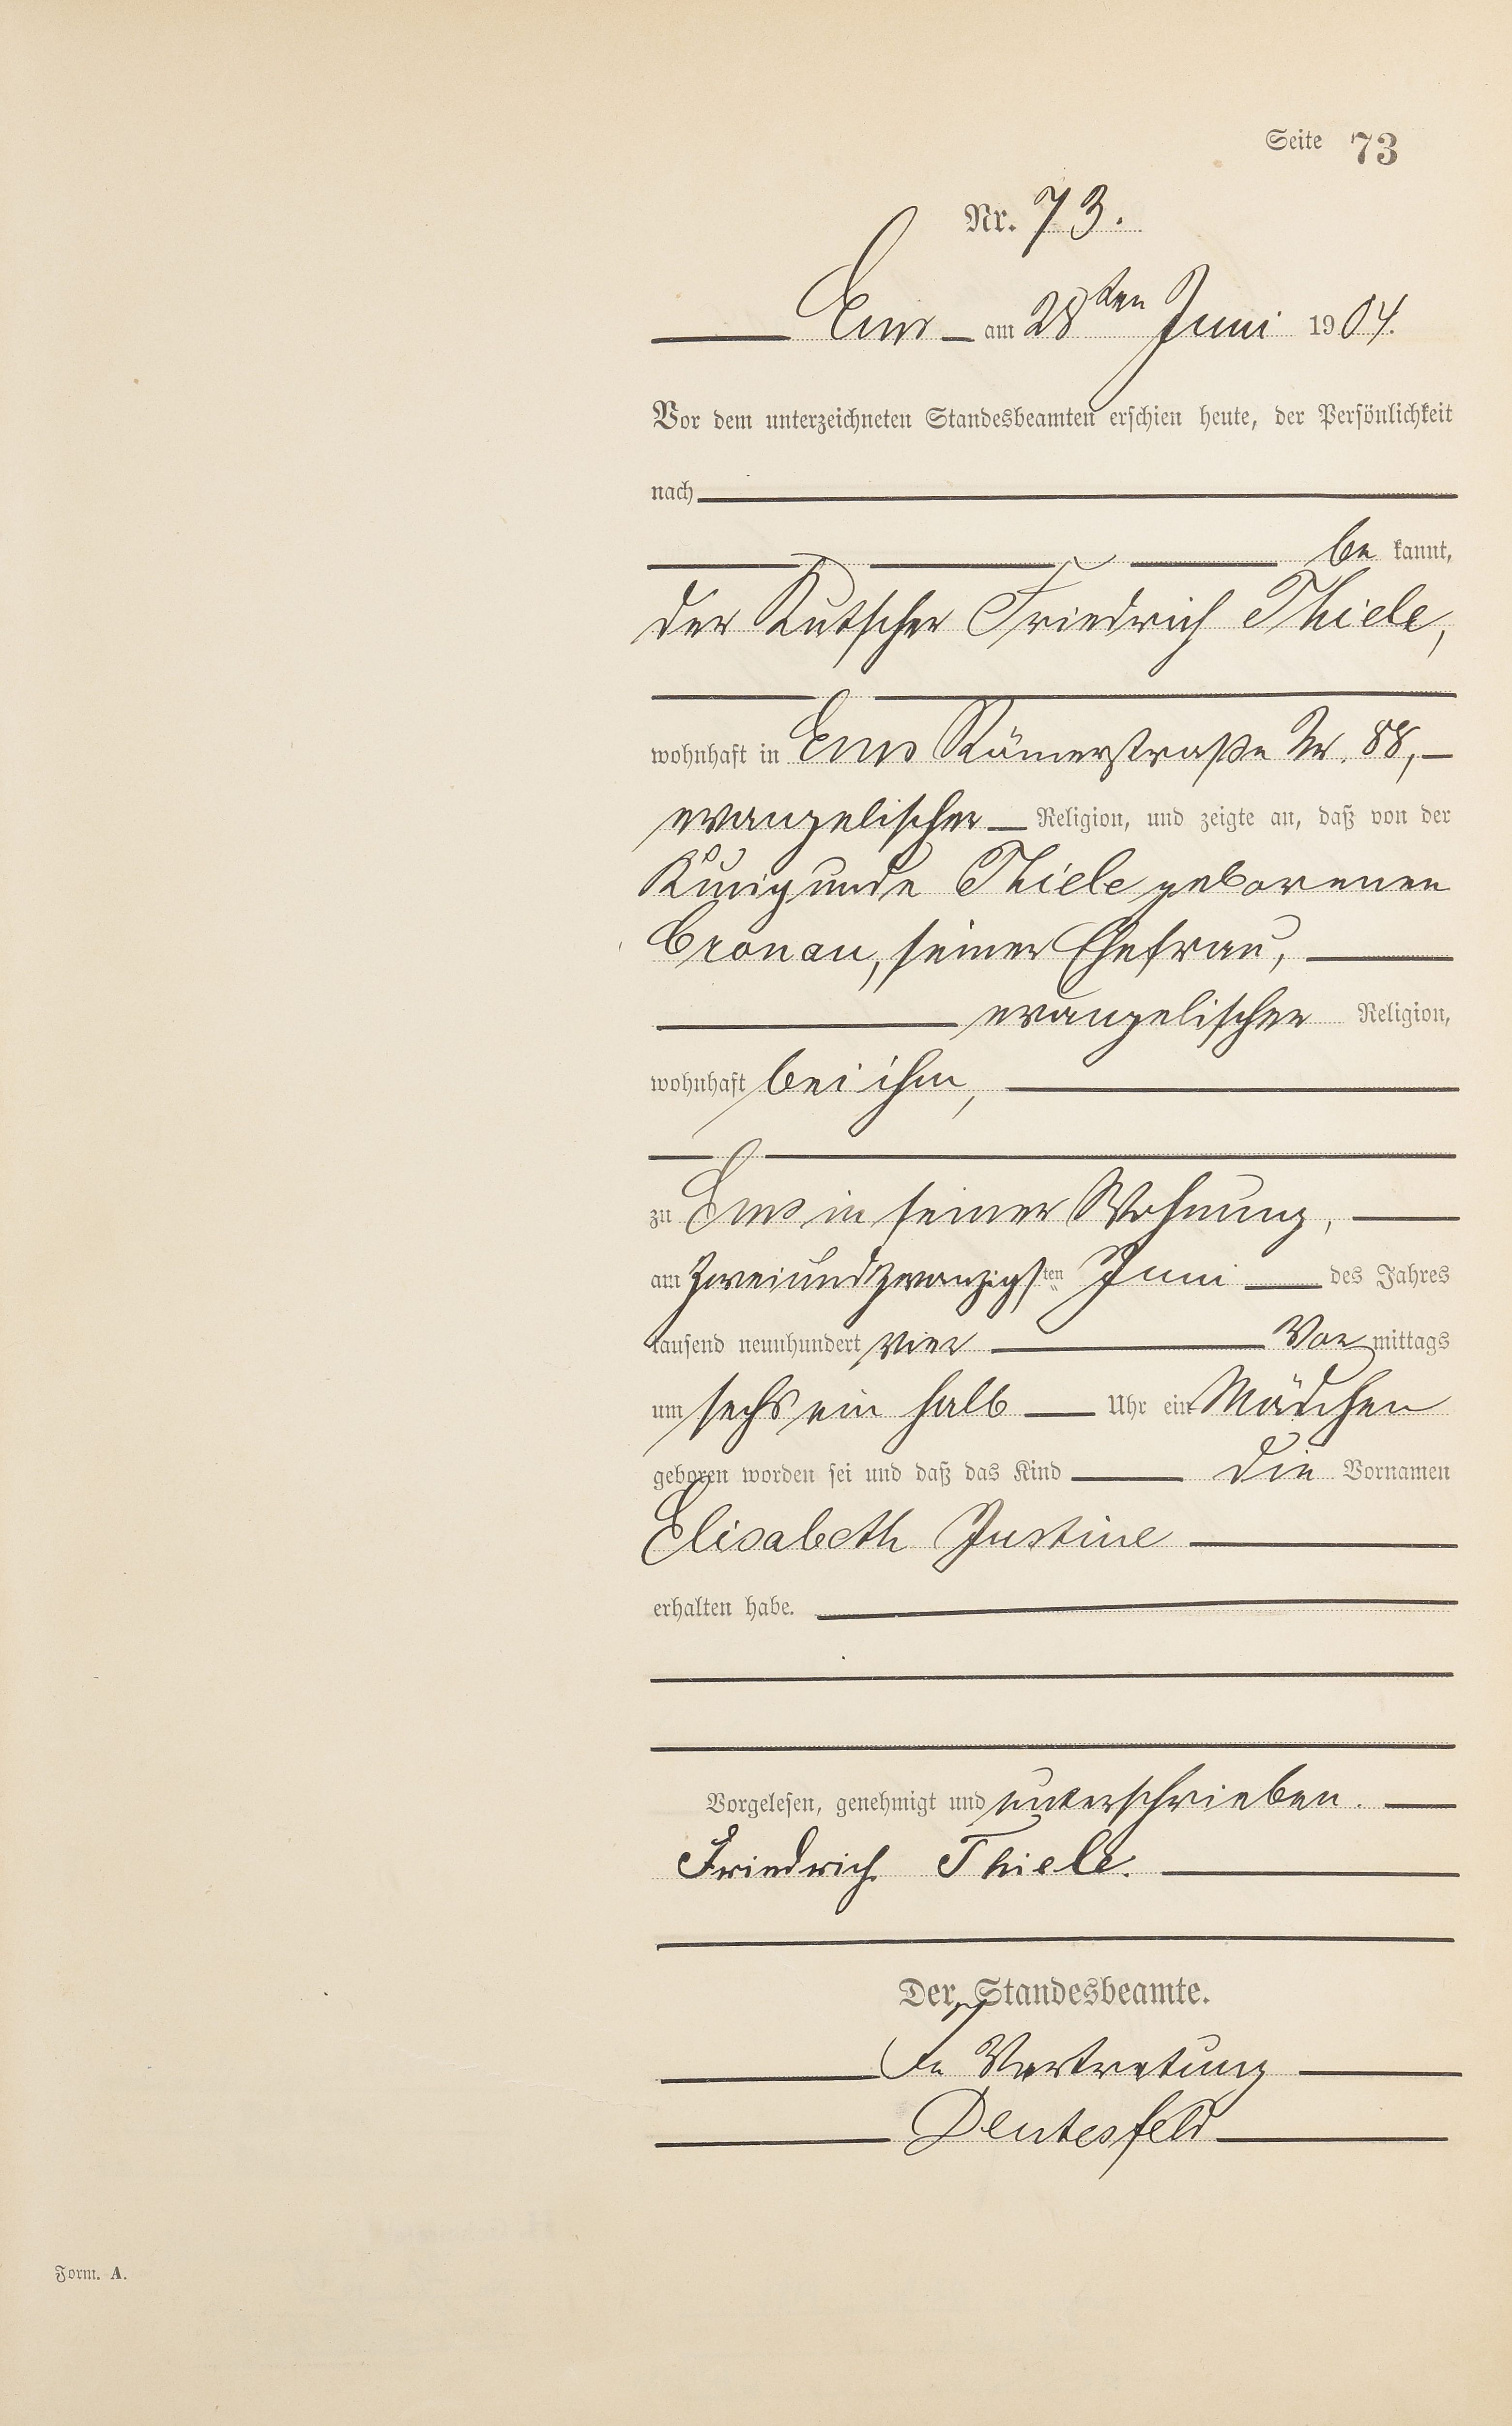 Seite 73
Nr. 73.
Ems am 28ten Juni 1904.
Vor dem unterzeichneten Standesbeamten erschien heute, der Persönlichkeit
nach
be kannt,
der Kutscher Friedrich Thiele,
wohnhaft in Ems Römerstraße Nr. 88,
evangelischer Religion, und zeigte an, daß von der
Kunigunde Thiele geborenen
Cronau, seiner Ehefrau,
evangelischer Religion,
wohnhaft bei ihm,
zu Ems in seiner Wohnung,
am zweiundzwanzigsten Juni des Jahres
tausend neunhundert vier Vor mittags
um sechs ein halb Uhr ein Mädchen
geboren worden sei und daß das Kind die Vornamen
Elisabeth Justine
erhalten habe.
Vorgelesen, genehmigt und unterschrieben.
Friedrich Thiele.
Der Standesbeamte.
In Vertretung
Deutesfeld
Form. A.